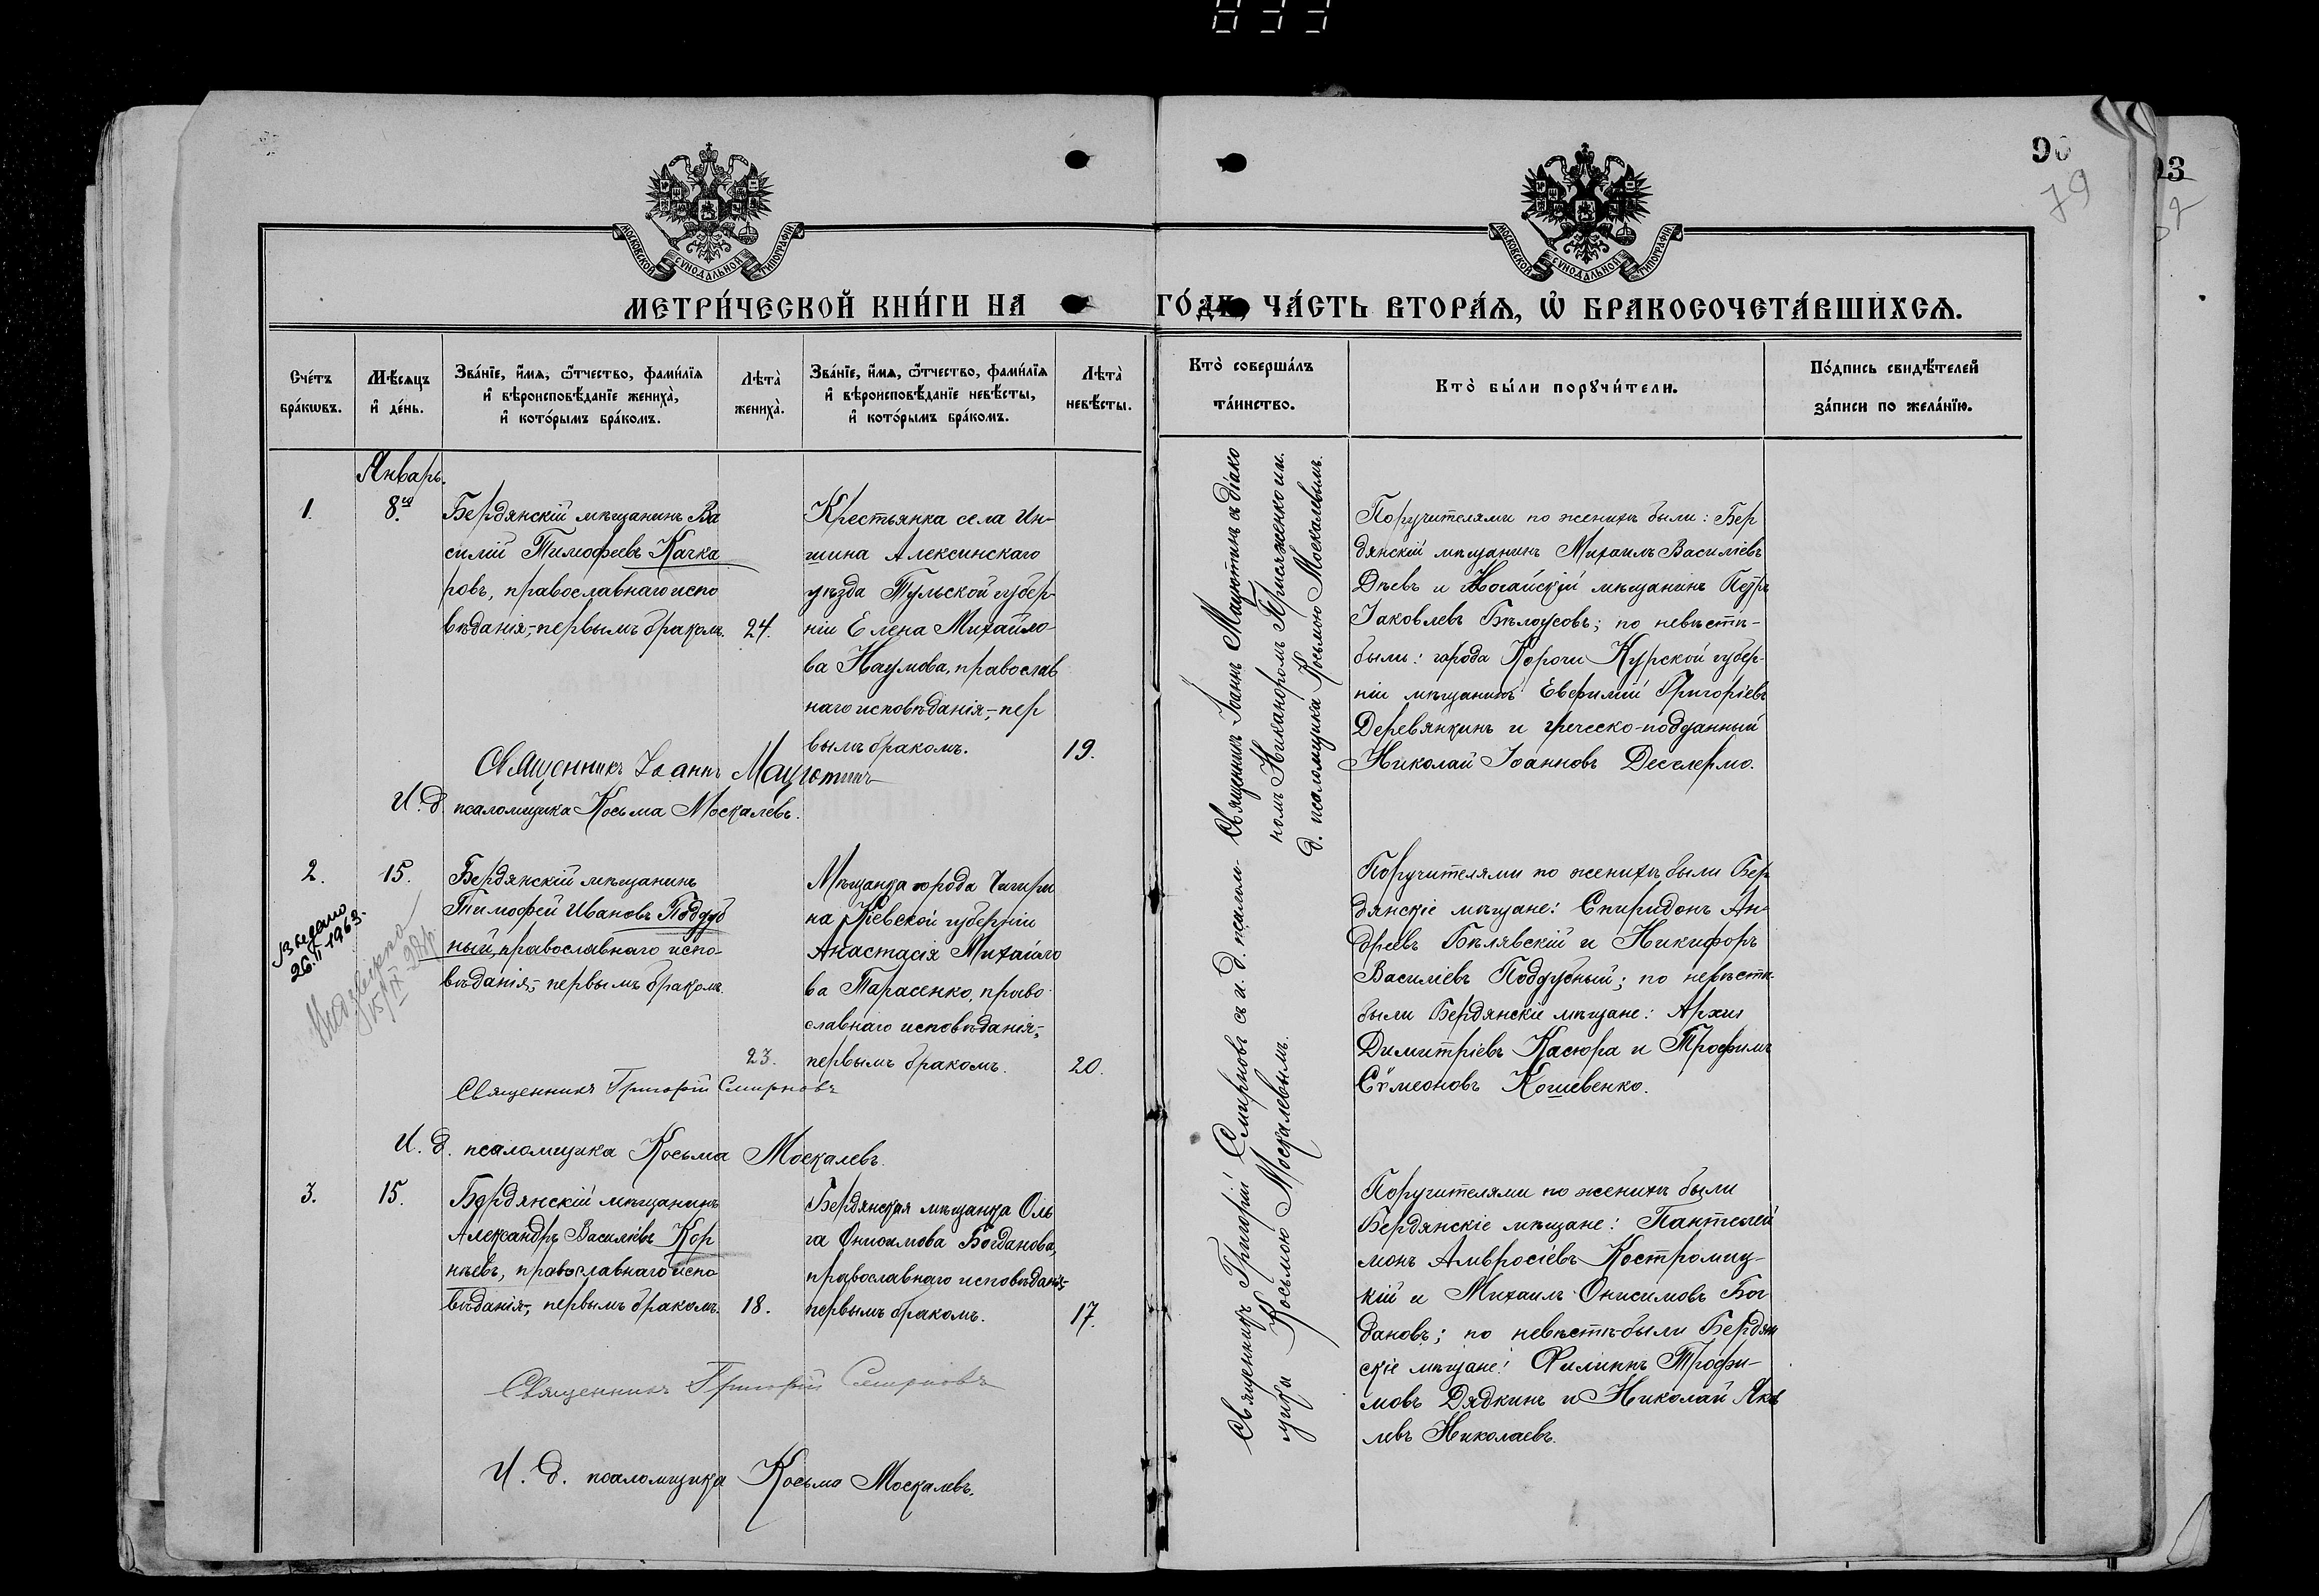 033
90
79
93
МОСКОВСКОЙ СѴНОДАЛЬНОЙ ТИПОГРАФІИ
МОСКОВСКОЙ СѴНОДАЛЬНОЙ ТИПОГРАФІИ
МЕТРИ́ЧЕСКОЙ КНИ́ГИ НА ГО́ДЪ, ЧА́СТЬ ВТОРА́Ѧ, Ѽ БРАКОСОЧЕТА́ВШИХСѦ.
Сче́тъ
бра́кѡвъ.
Мѣ́сѧцъ
и҆ де́нь.
Зва́нїе, и҆́мѧ, ѻ҆́тчество, фами́лїѧ
и҆ вѣроисповѣ́данїе жениха̀,
и҆ кото́рымъ бра́комъ.
Лѣта̀
жениха̀.
Зва́нїе, и҆́мѧ, ѻ҆́тчество, фами́лїѧ
и҆ вѣроисповѣ́данїе невѣ́сты,
и҆ кото́рымъ бра́комъ.
Лѣта̀
невѣ́сты.
Кто̀ соверша́лъ
та́инство.
Кто̀ бы́ли порꙋчи́тели.
По́дпись свидѣ́телей
за́писи по жела́нїю.
Январь.
1.
8го.
Бердянскій мѣщанинъ Ва
силій Тимофеевъ Качка
ровъ, православнаго испо
вѣданія,- первымъ бракомъ.
24.
Крестьянка села Ин-
шина Алексинскаго
уѣзда Тульской губер-
ніи Елена Михайло-
ва Наумова, православ
наго исповѣданія,- пер
вымъ бракомъ.
19.
Священникъ Іоаннъ Маухотинъ съ діако
номъ Никаноромъ Присяженко и и.
д. псаломщика Косьмою Москалевымъ.
Поручителями по женихѣ были: Бер
дянскій мѣщанинъ Михаилъ Василіевъ
Дѣевъ и Ногайскій мѣщанинъ Петръ
Іаковлевъ Бѣлоусовъ; по невѣстѣ-
были: города Корочи Курской губер-
ніи мѣщанинъ Евфимій Григоріевъ
Деревянкинъ и греческо-подданный
Николай Іоанновъ Десклермо.
Священникъ Іоаннъ Маухотинъ
И. д. псаломщика Косьма Москалевъ.
2.
15.
Выдано
26.II-1963.
Бердянскій мѣщанинъ
Тимофей Ивановъ Поддуб
ный, православнаго испо-
вѣданія,- первымъ бракомъ.
23.
Мѣщанка города Чигири
на Кіевской губерніи
Анастасія Михайло
ва Тарасенко, право
славнаго исповѣданія,-
первымъ бракомъ.
20.
Священникъ Григорій Смирновъ съ и. д. псалом-
щика Косьмою Москалевымъ.
Поручителями по женихѣ были Бер
дянскіе мѣщане: Спиридонъ Ан-
дреевъ Бѣлявскій и Никифоръ
Василіевъ Поддубный; по невѣстѣ
были Бердянскіе мѣщане: Архип
Димитріевъ Касюра и Трофимъ
Сѵмеоновъ Кошевенко.
Священникъ Григорій Смирновъ
И. д. псаломщика Косьма Москалевъ.
3.
15.
Бердянскій мѣщанинъ
Александръ Василіевъ Кор
нѣевъ, православнаго испо
вѣданія,- первымъ бракомъ.
18.
Бердянская мѣщанка Оль
га Онисимова Богданова,
православнаго исповѣданія,-
первымъ бракомъ.
17.
Поручителями по женихѣ были
Бердянскіе мѣщане: Пантелей
монъ Амвросіевъ Костромиц-
кій и Михаилъ Онисимовъ Бог
дановъ; по невѣстѣ-были Бердян
скіе мѣщане: Филиппъ Трофи-
мовъ Дядкинъ и Николай Яков
левъ Николаевъ.
Священникъ Григорій Смирновъ
И. д. псаломщика Косьма Москалевъ.